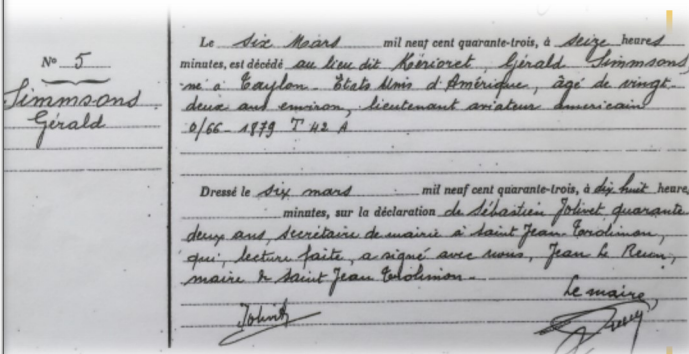 N° 5
Simmsons
Gérald
Le six Mars mil neuf cent quarante-trois, à seize heures
minutes, est décédé au lieu dit Kérioret, Gérald Simmsons,
né à Taylon - Etats Unis d'Amérique, âgé de vingt-
deux ans environ, lieutenant aviateur américain
0/66-1879 T 42 A
Dressé le six mars mil neuf cent quarante-trois, à dix huit heure,
minutes, sur la déclaration de Sébastien Jolivet quarante
deux ans, secrétaire de mairie à Saint Jean Trolimon,
qui, lecture faite, a signé avec nous, Jean Le
maire de Saint Jean Trolimon.
Le maire,
Jolivet